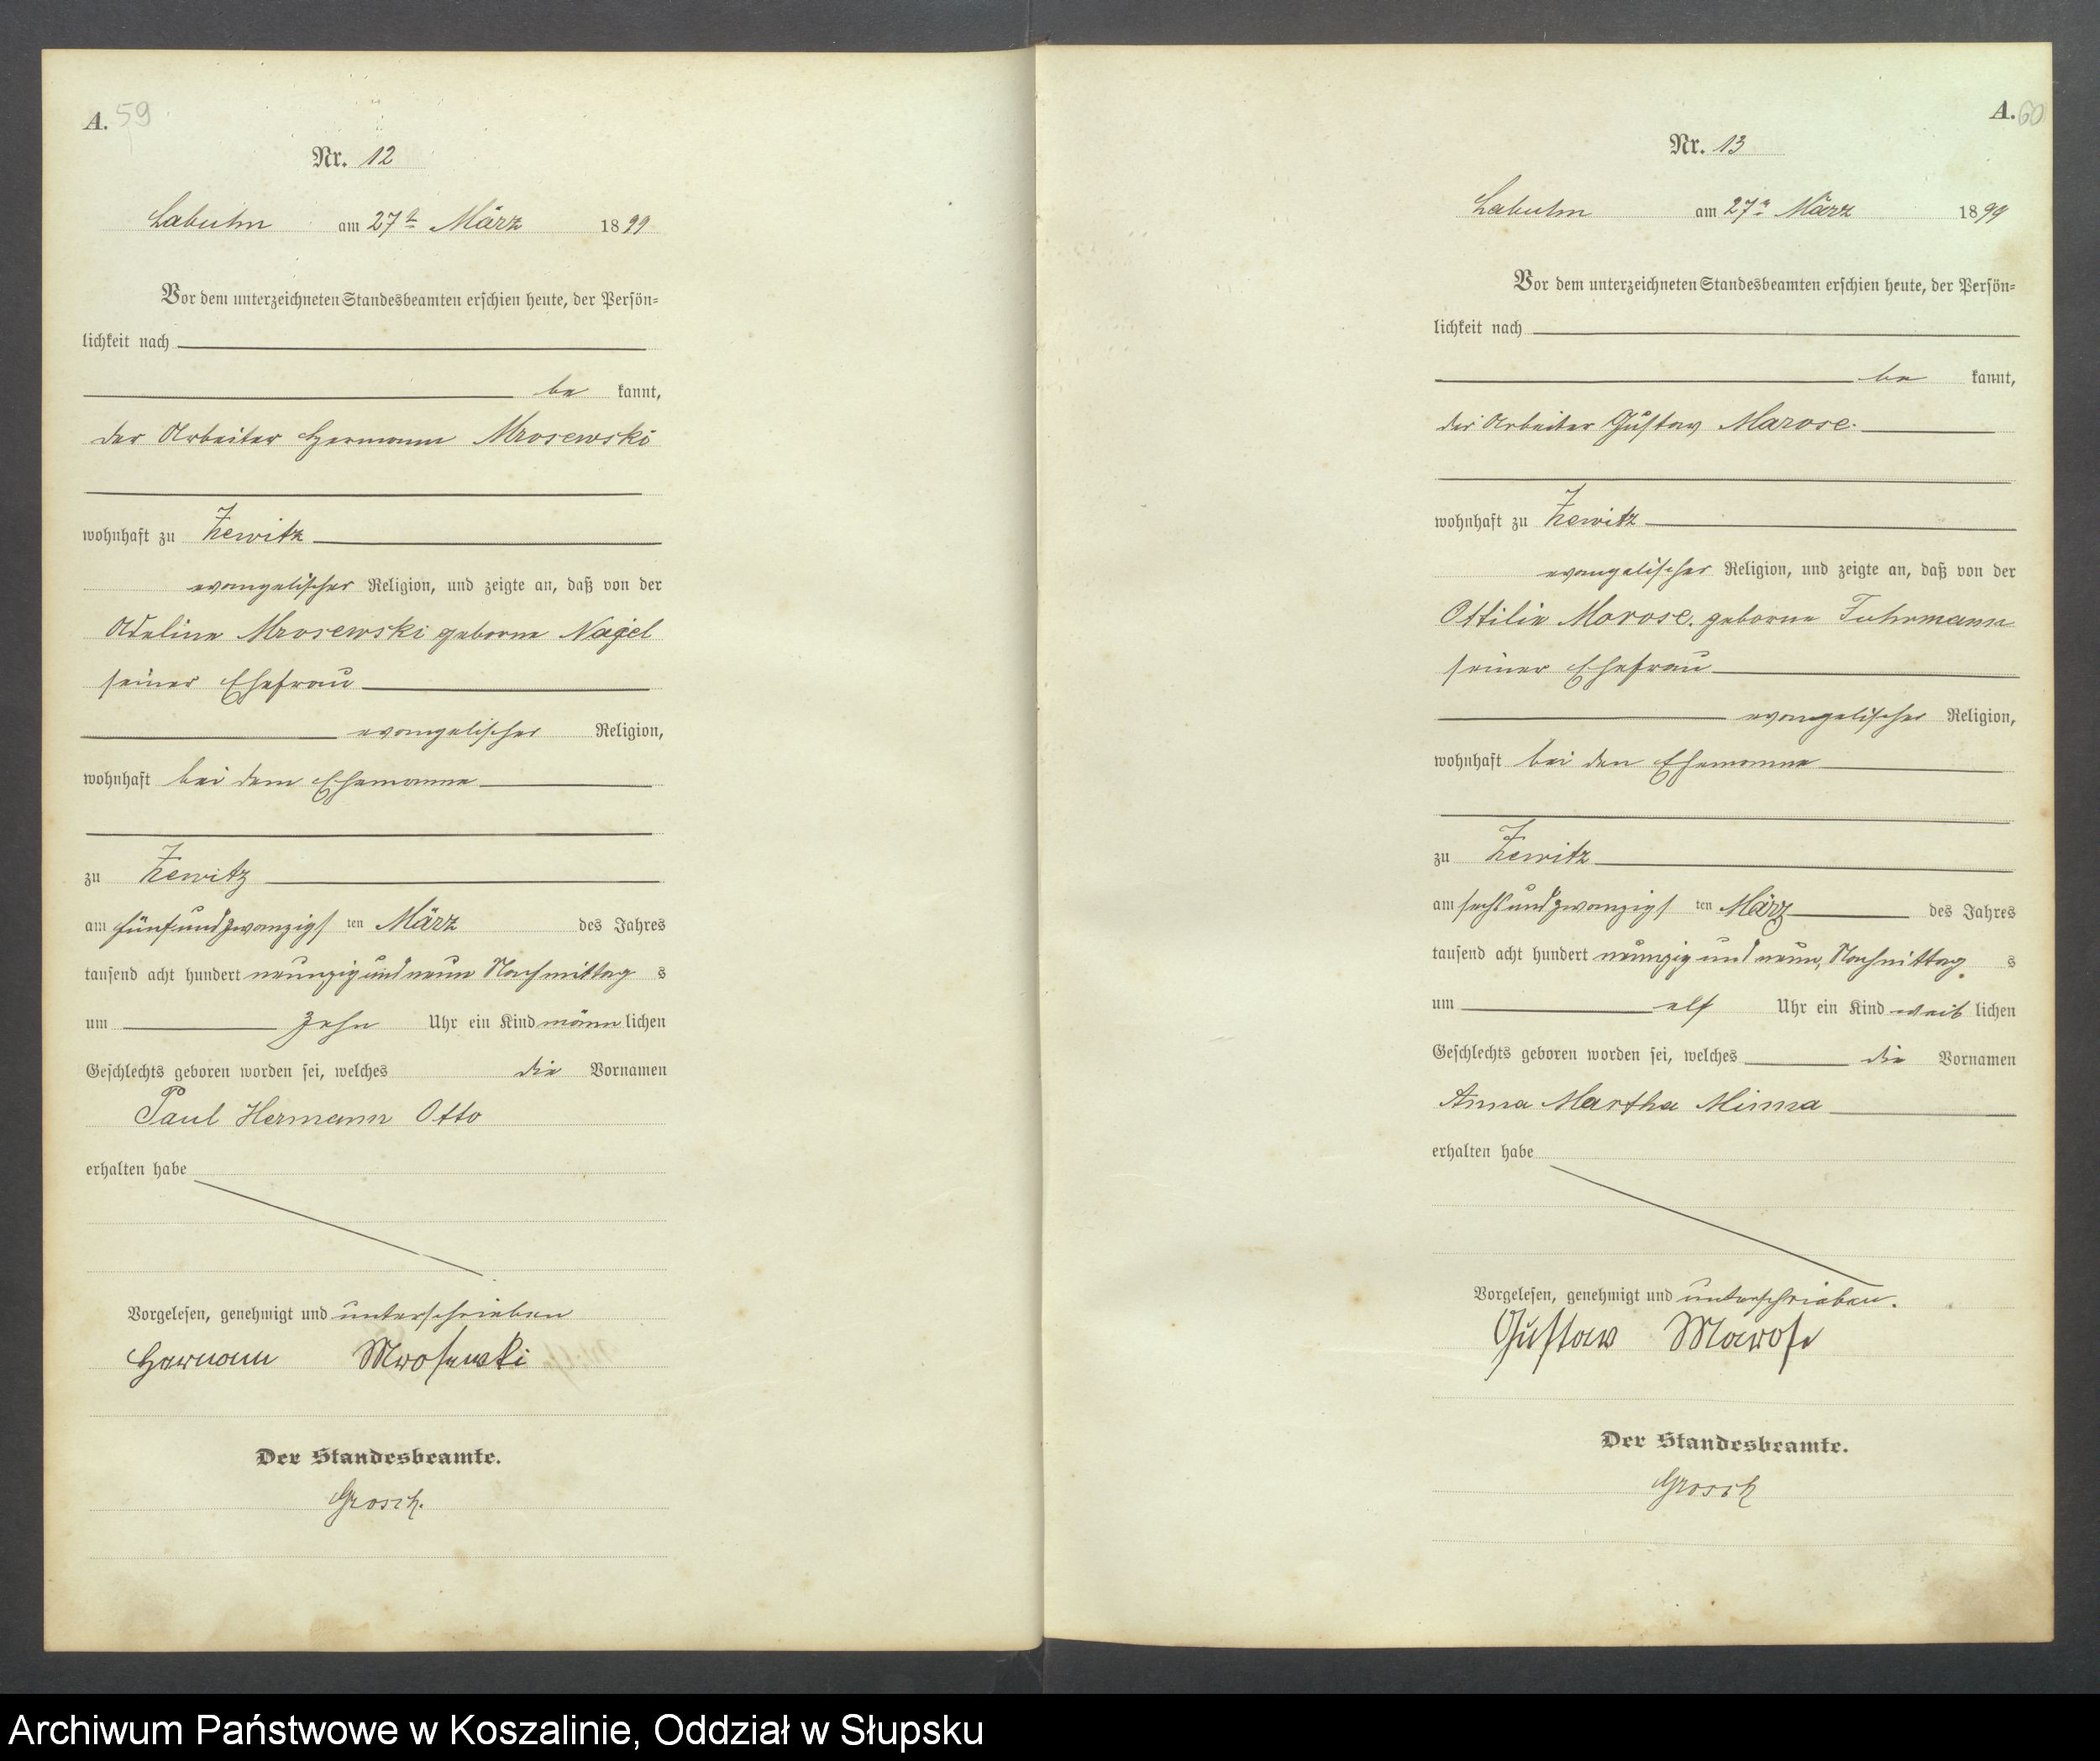 A. 59
Nr. 12
Labuhn am 27ten März 1899
Vor dem unterzeichneten Standesbeamten erschien heute, der Persön-
lichkeit nach
be kannt,
der Arbeiter Hermann Mrosewski
wohnhaft zu Zewitz
evangelischer Religion, und zeigte an, daß von der
Adeline Mrosewski geborne Nagel
seiner Ehefrau
evangelischer Religion,
wohnhaft bei dem Ehemanne
zu Zewitz
am fünfundzwanzigs ten März des Jahres
tausend acht hundert neunzig und neun Nachmittag s
um zehn Uhr ein Kind männ lichen
Geschlechts geboren worden sei, welches die Vornamen
Paul Hermann Otto
erhalten habe
Vorgelesen, genehmigt und unterschrieben
Hermann Mrosewski
Der Standesbeamte.
Grosch.
A. 60
Nr. 13
Labuhn am 27ten März 1899
Vor dem unterzeichneten Standesbeamten erschien heute, der Persön-
lichkeit nach
be kannt,
der Arbeiter Gustav Marose.
wohnhaft zu Zewitz
evangelischer Religion, und zeigte an, daß von der
Ottilie Marose. geborne Fuhrmann
seiner Ehefrau
evangelischer Religion,
wohnhaft bei den Ehemanne
zu Zewitz
am sechsundzwanzigs ten März des Jahres
tausend acht hundert neunzig und neun, Nachmittag s
um elf Uhr ein Kind weib lichen
Geschlechts geboren worden sei, welches die Vornamen
Anna Martha Minna
erhalten habe
Vorgelesen, genehmigt und unterschrieben.
Gustaw Marose
Der Standesbeamte.
Grosch
Archiwum Państwowe w Koszalinie, Oddział w Słupsku